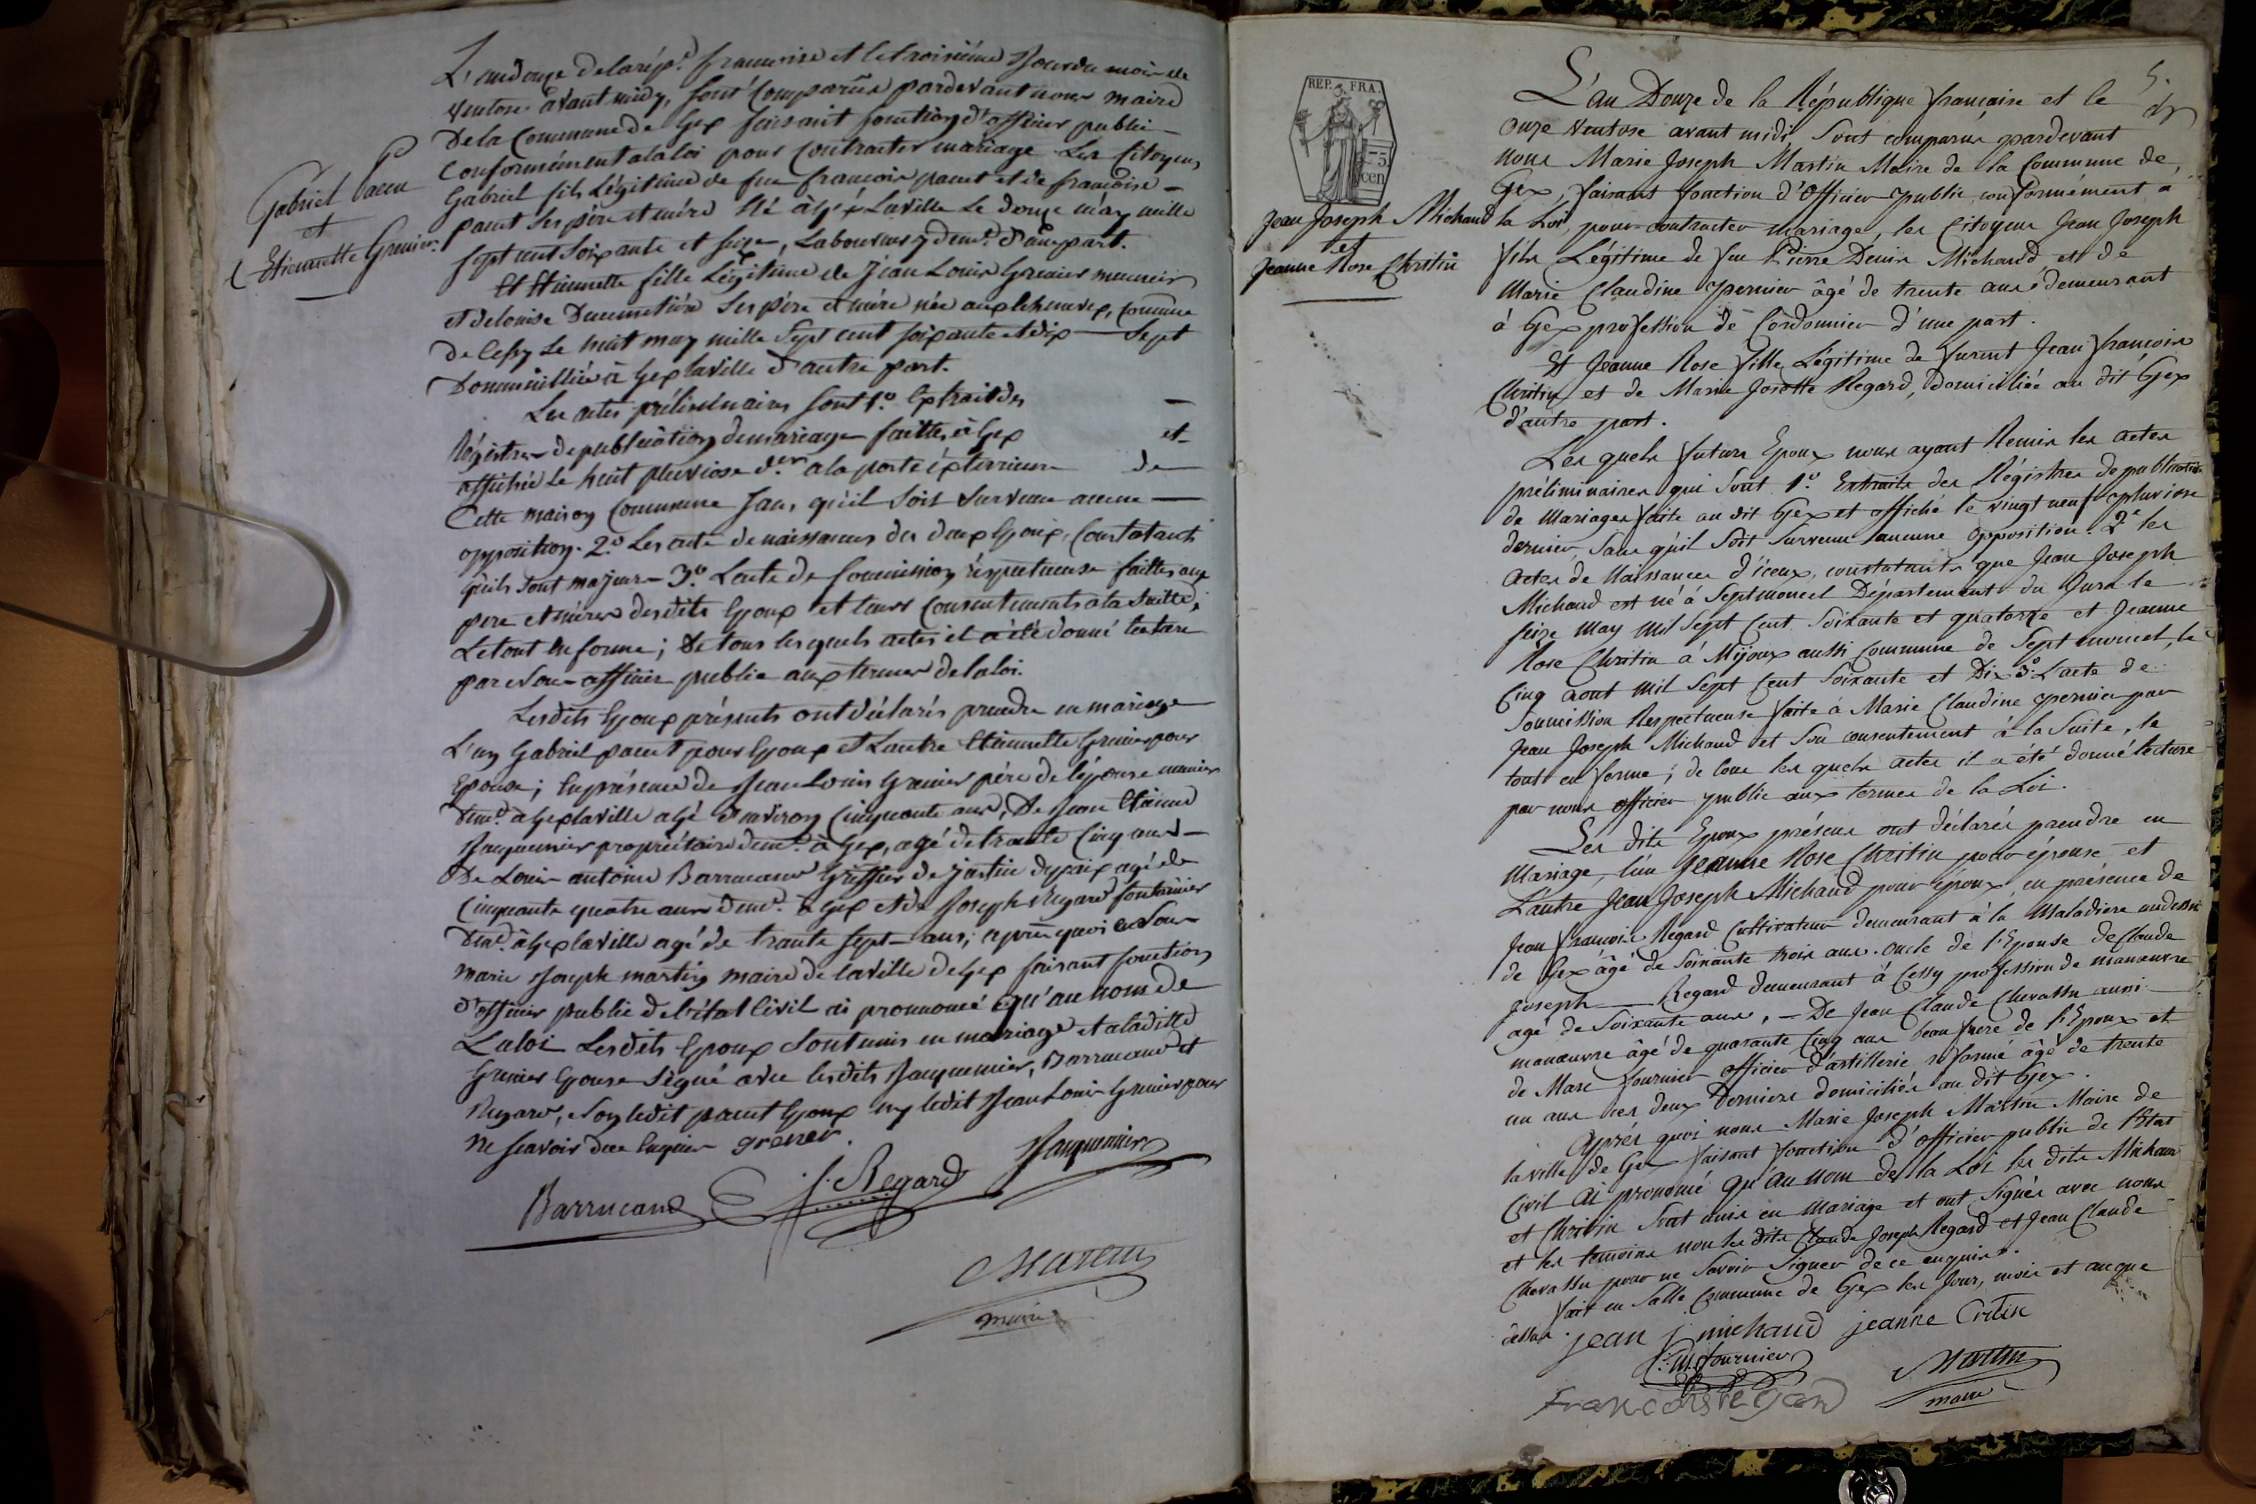 L'an douze de la rép.e francaise et le troisiéme Jour du mois de
Ventose avant midy, sont comparûs pardevant nous maire
De la Commune de Gex faisant fonction d'officier public
Conformément a la loi pour Contracter mariage Les Citoyens
Gabriel fils Légitime de feu francois pacut et de francoise
pacut ses pére et mére Né à Gex La ville Le douze may mille
sept cent soixante et seize, Laboureur y dem.t d'une part.
Gabriel Pacut
et
Etiennette Grenier
Et Etiennette fille Légitime de Jean Louis Grenier meunier
et de louise Ducimetière ses pére et mére née aux , Commune
De Cessy Le huit may mille sept cent soixante et dix Sept
Domiciliée à Gex la ville d'autre part.
Les actes préliminaires sont 1.o Extrait des
Régistres de publication de mariage faittes à Gex et
affichée Le huit pluviose d.er a la porte éxterieure de
Cette maison Commune sans qu'il soit survenu aucune
opposition. 2.o Les acte de naissances des deux Epoux, Constatant
qu'ils sont majeurs 3.o L'acte de soumission réspectueuse faitte aux
pere et méres desdits Epoux et leurs Consentements a la suitte,
Le tout en forme; De tous lesquels actes il a été donné lecture
par Nous officier public aux termes de la loi.
Lesdits Epoux présents ont déclarés prendre en mariage
L'un Gabriel pacut pour Epoux et L'autre Etiennette Grenier pour
Epouse; En présence de Jean Louis Grenier pére de l'épouse meunier
Dem.t à Gex la ville agé d'environ Cinquante ans, De Jean Etienne
Jacquemier propriétaire dem.t à Gex, agé de trante Cinq ans
De Louis antoine Barrucand Greffier de justice de paix agé de
Cinquante quatre ans dem.t à Gex et de Joseph Regard fontainier
Dem.t à Gex la ville agé de trante sept ans; après quoi Nous
marie Joseph martin maire de la ville de Gex faisant fonction
d'officier public de l'état Civil ai prononcé qu'au nom de
La loi Lesdits Epoux sont unis en mariage et a ladite
Grenier Epouse signé avec lesdits Jacquemier, Barrucand et
Regard, Non ledit pacut Epoux ny ledit Jean Louis Grenier pour
Ne scavoir de ce Enquis grener
Barrucand J. Regard Jacquemier
Martin
maire
5.
REP. FRA.
75
cen
Jean Joseph Michaud
et
Jeanne Rose Christin
L'an Douze de la République francaise et le
onze Ventose avant midi, Sont comparus pardevant
nous Marie Joseph Martin Maire de la Commune de
Gex, faisant fonction d'Officier public, conformément à
la Loi, pour contracter mariage, les Citoyens Jean Joseph
fils Légitime de feu Pierre Denis Michaud et de
Marie Claudine Pernier âgé de trente ans demeurant
à Gex profession de Cordonnier d'une part.
Et Jeanne Rose fille Légitime de furent Jean francois
Christin et de Marie Josette Regard, domiciliée au dit Gex
d'autre part.
Les quels futurs Epoux nous ayant Remis les actes
préliminaires qui sont 1.o Extraits des Régistres de publication
de Mariages faite au dit Gex et affiché le vingt neuf pluviose
dernier, sans qu'il soit survenu aucune opposition. 2.e les
actes de Naissances d'iceux, constatants que Jean Joseph
Michaud est né à Septmoncel Département du Jura le
seize May Mil Sept Cent Soixante et quatorze et Jeanne
Rose Christin à Mijoux aussi Commune de Sept moncel, le
Cinq aout Mil Sept Cent Soixante et Dix 3.o L'acte de
Soumission Respectueuse faite à Marie Claudine Pernier par
Jean Joseph Michaud et Son consentement à la Suite, le
tout en forme; de tous les quels actes il a été donné lecture
par nous officier public aux termes de la Loi.
Les dits Epoux présens ont déclarés prendre en
Mariage, l'un Jeanne Rose Christin pour épouse et
L'autre Jean Joseph Michaud pour époux, en présence de
Jean francois Regard Cultivateur demeurant à la Maladiere au dessus
de Gex âgé de Soixante trois ans. oncle de l'Epouse de Claude
Joseph Regard demeurant à Cessy profession de manœuvre
agé de Soixante ans, De Jean Claude Chevassu aussi
manœuvre âgé de quarante Cinq ans beau frere de l'Epoux et
de Marc fournier officier d'artillerie réformé âgé de trente
un ans les deux Derniers domiciliés au dit Gex.
Après quoi nous Marie Joseph Martin Maire de
la ville de Gex faisant fonction d'officier public de l'Etat
Civil Ai prononcé qu'au nom de la Loi les dits Michaud
et Christin Sont unis en Mariage et ont Signés avec nous
et les temoins non les dits Claude Joseph Regard et Jean Claude
Chevassu pour ne Savoir Signer de ce enquis.
fait en Salle Commune de Gex les Jour, mois et an que
dessus. jean j michaud jeanne Critin
C. M. fournier Martin
francois regard maire